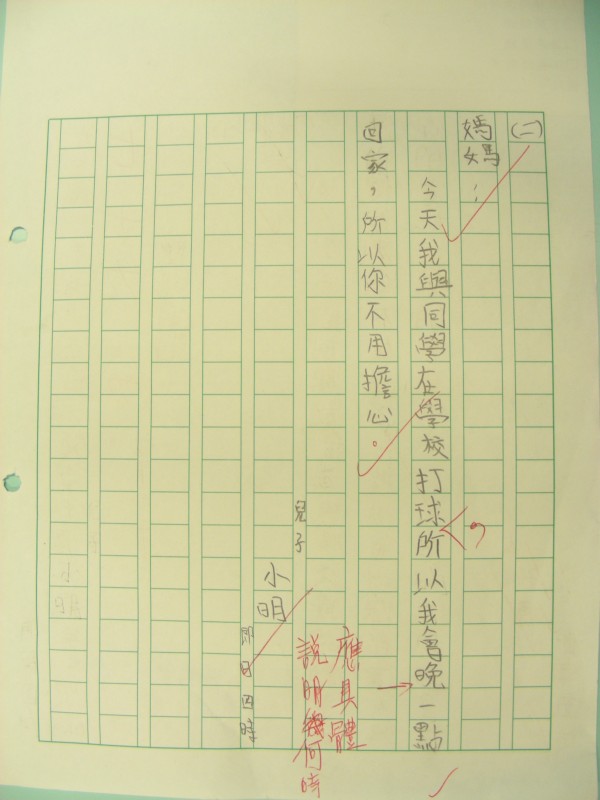 (二)
媽媽：
今天我與同學在學校打球，所以我會晚一點
回家，所以你不用擔心。
兒子
小明
即日四時
應具體
說明幾何時